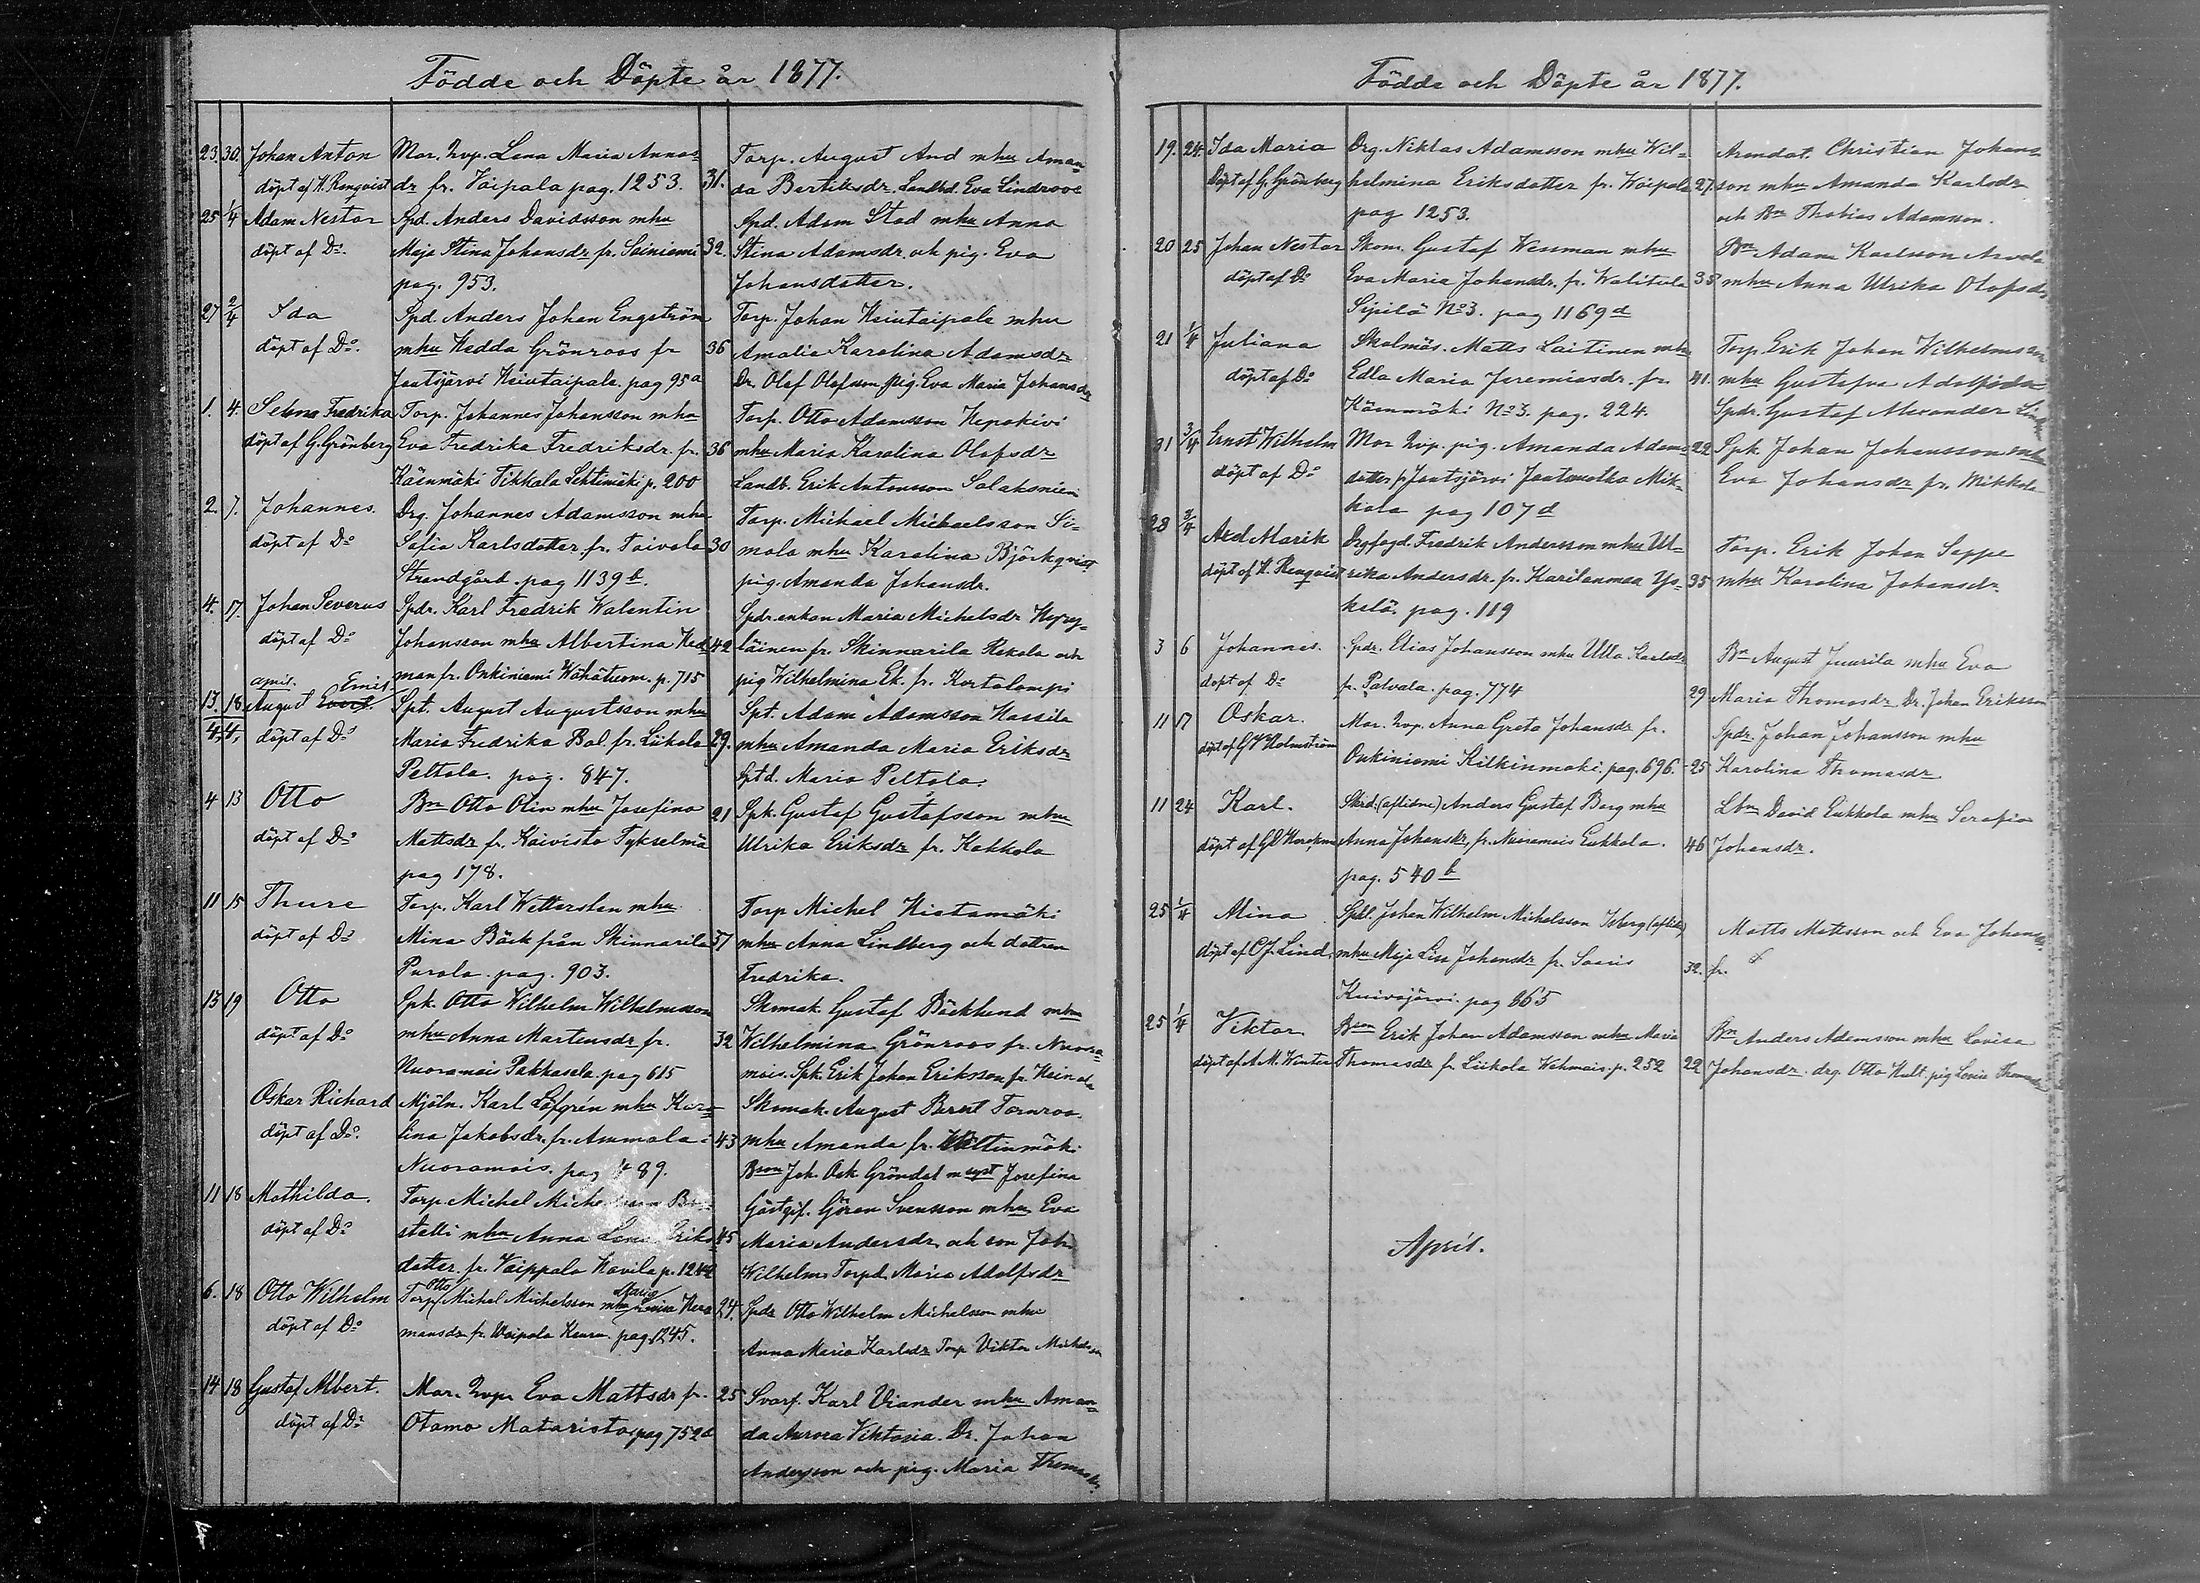 Födde och Döpte år 1877.
23. 30. Johan Anton Mor. Inp. Lena Maria Anna- Torp. August And mhu Aman-
döpt af H. Renqvist dr fr. Voipala pag. 1253. 31. da Bertilsdr. Landbd. Eva Lindroos
25 1/4 Adam Nestor Spd. Anders Davidsson mhu Spd. Adam Stad mhu Anna
döpt af Do. Maja Stina Johansdr fr. Seiniemi 32. Stina Adamsdr och pig. Eva
pag. 953. Johansdatter.
27 2/4 Ida Spd. Anders Johan Engström Torp. Johan Heiutaipale mhu
döpt af Do. mhu Hedda Grönroos fr 36 Amalia Karolina Adamsdr
Jautsjärvi Heiutaipale. pag 95a Dr. Olof Olofsson pig. Eva Maria Johansdr
1. 4. Selma Fredrika Torp. Johannes Johansson mhu Torp. Otto Adamsson Hepokivi
döpt af G. Grönberg Eva Fredrika Fredriksdr. fr. 36 mhu Maria Karolina Olofsdr
Käenmäki Tikkala Lehtimäki p. 200 Landb. Erik Antonsson Salaksnien
2. 7. Johannes. Drg. Johannes Adamsson mhu Torp. Michael Michaelsson Si-
döpt af Do Sofia Karlsdotter fr. Toivola 30 mola mhu Karolina Björkqvist
Strandgård. pag 1139b. pig. Amanda Johansdr.
4. 17. Johan Severus Spdr. Karl Fredrik Walentin Spdr. enkan Maria Michelsdr Hyry-
döpt af Do Johansson mhu Albertina Hed- 42 läinen fr. Skinnarila Rekola och
man fr. Onkiniemi Wähätuom. p. 715 pig Wilhelmina Ek. fr. Kortolampi
april. Emil
13. 18 August Spt. August Augustsson mhu Spt. Adam Adamsson Hassila
4. 4. döpt af Do Maria Fredrika Bol. fr. Liikola 29. mhu Amanda Maria Eriksdr
Peltola. pag. 847. Sptd. Maria Peltola.
4 13 Otto Bn Otto Olin mhu Josefina 21 Spk. Gustaf Gustafsson mhu
döpt af Do Mattsdr fr. Koivisto Tykselmä Ulrika Eriksdr fr. Kakkola
pag 178.
11 15 Thure Torp. Karl Wettersten mhu Torp Michel Hietamäki
döpt af Do Mina Bäck från Skinnarila 57 mhu Anna Lindberg och dottren
Purola. pag. 903. Fredrika.
13 19 Otto Spk. Otto Wilhelm Wilhelmsson Skomak. Gustaf Bäcklund mhu
döpt af Do mhu Anna Martensdr fr. 32 Wilhelmina Grönroos fr. Nuora-
Nuoramois Pakkasela. pag 615 mois. Spk. Erik Johan Eriksson fr. Heinola
Oskar Richard Mjöln. Karl Löfgrén mhu Karo- Skomak. August Bernt Törnroo.
döpt af Do. lina Jakobsdr. fr. Ammala 43 mhu Amanda fr. Woltinmäki
Nuoramois. pag 489. Bson Joh. Osk. Gröndal m syst Josefina
11 18 Mathilda. Torp. Michel Bo- Gästgif. Göran Svensson mhu Eva
döpt af Do stelli mhu Anna Lena Eriks 45 Maria Andersdr och son Joh.
dotter. fr. Voippala Havila p. 1244 Wilhelm. Torpd. Maria Adolfsdr
6. 18 Otto Wilhelm Torp Otto Michel Michelsson mhu Maria Her- 24. Spdr Otto Wilhelm Michelsson mhu
döpt af Do mansdr fr. Woipala Keura. pag. 1245. Anna Maria Karlsdr Torp Viktor Michelsson
14 18 Gustaf Albert. Mor. Inp. Eva Mattsdr fr. 25 Svarf. Karl Viander mhu Aman-
döpt af Do Otamo Mataristo pag 752 da Aurora Viktoria. Dr. Johan
Andersson och pig. Maria Thomasdr.
Födde och Döpte år 1877.
19. 24. Ida Maria Drg. Niklas Adamsson mhu Wil- Arendat. Christian Johans-
Döpt af G. Grönberg helmina Eriksdotter fr. Woipala 27. son mhu Amanda Karlsdr
pag 1253. och Bn Thobias Adamsson.
20 25 Johan Nestor Skom. Gustaf Wessman mhu Bn Adam Karlsson Arvola
döpt af Do Eva Maria Johansdr. fr. Walittula 35 mhu Anna Ulrika Olofsdr
Sipilä No 3. pag 1169d
21 1/4 Juliana Skolmäs. Matts Laitinen mhu Torp. Erik Johan Wilhelmsson
döpt af Do Edla Maria Jeremiasdr. fr. 41. mhu Gustafva Adolfsdr
Käenmäki No 3. pag. 224. Spdr. Gustaf Alexander
31 3/4 Ernst Wilhelm Mor Inp. pig. Amanda Adams- 22 Spk. Johan Johansson mhu
döpt af Do dotter fr Jautsjärvi Jautmotka Mik- Eva Johansdr fr. Mikkola
kola pag 107d
28 3/4 Axel Marik Drgfogd. Fredrik Andersson mhu Ul- Torp. Erik Johan Seppe
döpt af H. Renqvist rika Andersdr. fr. Karilanmaa Ys- 35 mhu Karolina Johansdr.
kelä. pag. 119
3 6 Johannes. Spdr. Elias Johansson mhu Ulla Karlsdr Bn August Juurila mhu Eva
döpt af Do fr. Patvala. pag. 774 29 Maria Thomasdr. Dr. Johan Eriksson
11 17 Oskar. Mor. Inp. Anna Greta Johansdr fr. Spdr. Johan Johansson mhu
döpt af G W Holmström Onkiniemi Kilkinmäki. pag. 696. 25 Karolina Thomasdr
11 24 Karl. Skrd. (aflidne) Anders Gustaf Berg mhu Lbn David Eukkola mhu Serafia
döpt af Anna Johansdr, fr. Nuoramois Eukkola. 46 Johansdr.
pag. 540b
25 1/4 Alina Spkl. Johan Wilhelm Michelsson Isberg (aflid.) Matts Mattsson och Eva Johansdr
döpt af C J. Lind. mhu Maja Lisa Johansdr fr. Saaris 32. fr.
Kuivajärvi. pag 865
25 1/4 Viktor Bson Erik Johan Adamsson mhu Maria Bn Anders Adamsson mhu Lovisa
döpt af A. M. Winter Thomasdr fr Liikola Wehmais. p. 252 22 Johansdr. drg. Otto Hult pig Lovisa Thomasdr
April.